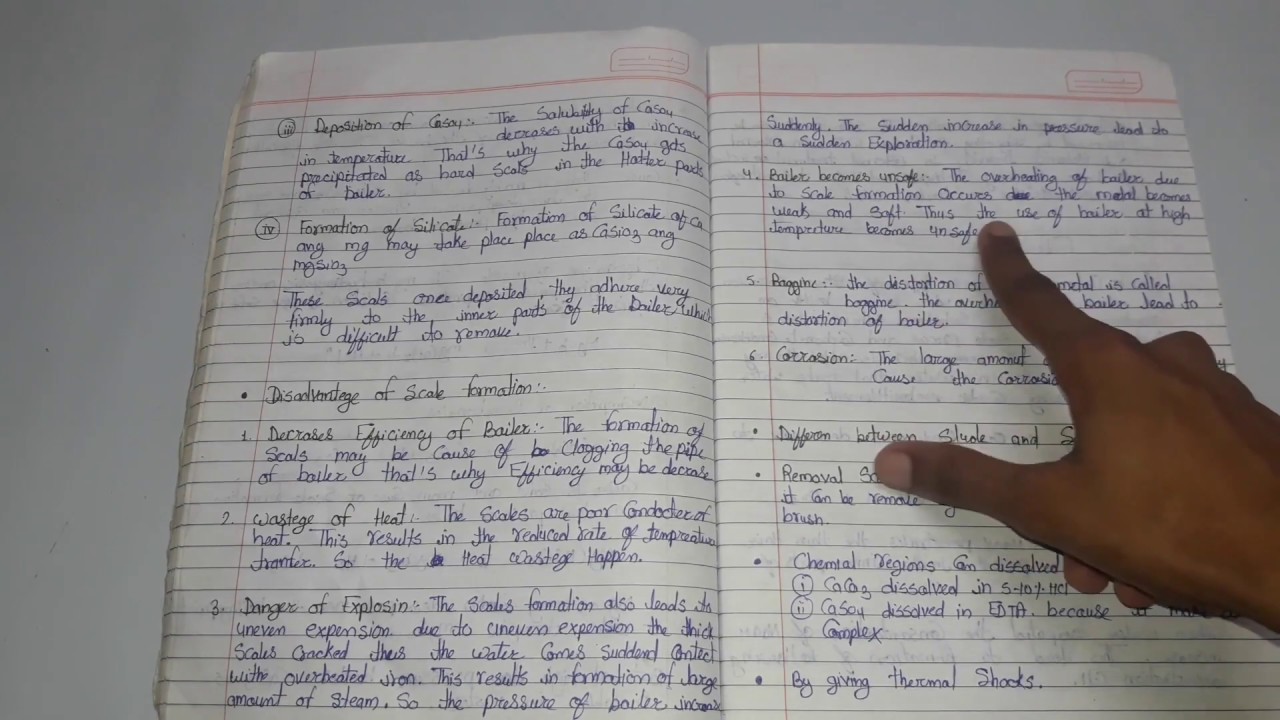 iii Deposition of Casoy:. The Salubility of Casoy
decreases with increase
in temperature. That's why the Casoy gets
precipitated as hard Scals in the Hatter parts
of bailer.
iv Formation of Silicate:. Formation of Silicate of ca
ang mg may take place place as Casio3 ang
mgsio3
These Scals once deposited thy adhere very
firmly to the inner parts of the Bailer which
is difficult to remove.
• Disadvantege of Scale formation:.
1. Decrases Efficiency of Bailer:. The formation of
Scals may be Cause of Clogging the pipe
of bailer that's why Efficiency may be decrase
2. Wastege of Heat:. The Scales are poor Conductor of
heat. This results in the reduced rate of
tranfer. So the Heat Wastege Happen.
3. Danger of Explosin:. The Scales formation also leads to
uneven expension. due to uneven expension the thick
Scales Cracked thus the water Comes Suddend Contect
with overheated iron. This results in formation of large
amount of Steam. So the pressure of bailer increase
Suddenly. The Sudden increase in pressure lead to
a Sudden Exploration.
4. Bailer becomes unsafe:. The overheating of bailer due
to Scale formation Occures the metal becomes
weak and Soft. Thus the use of bailer at high
tempreture becomes unsafe
5. Baggine:. the distortion of metal is called
baggine. the bailer lead to
distortion of bailer.
6. Corrosion: The large amount
Cause the
• Differen between Slude and
• Removal
it Can be remove
brush.
• Chemial regions Can dissolved
i CaCo3 dissolved in 5-10% HCl
ii Casoy dissolved in EDTA. because it
Complex
• By giving thermal Shocks.